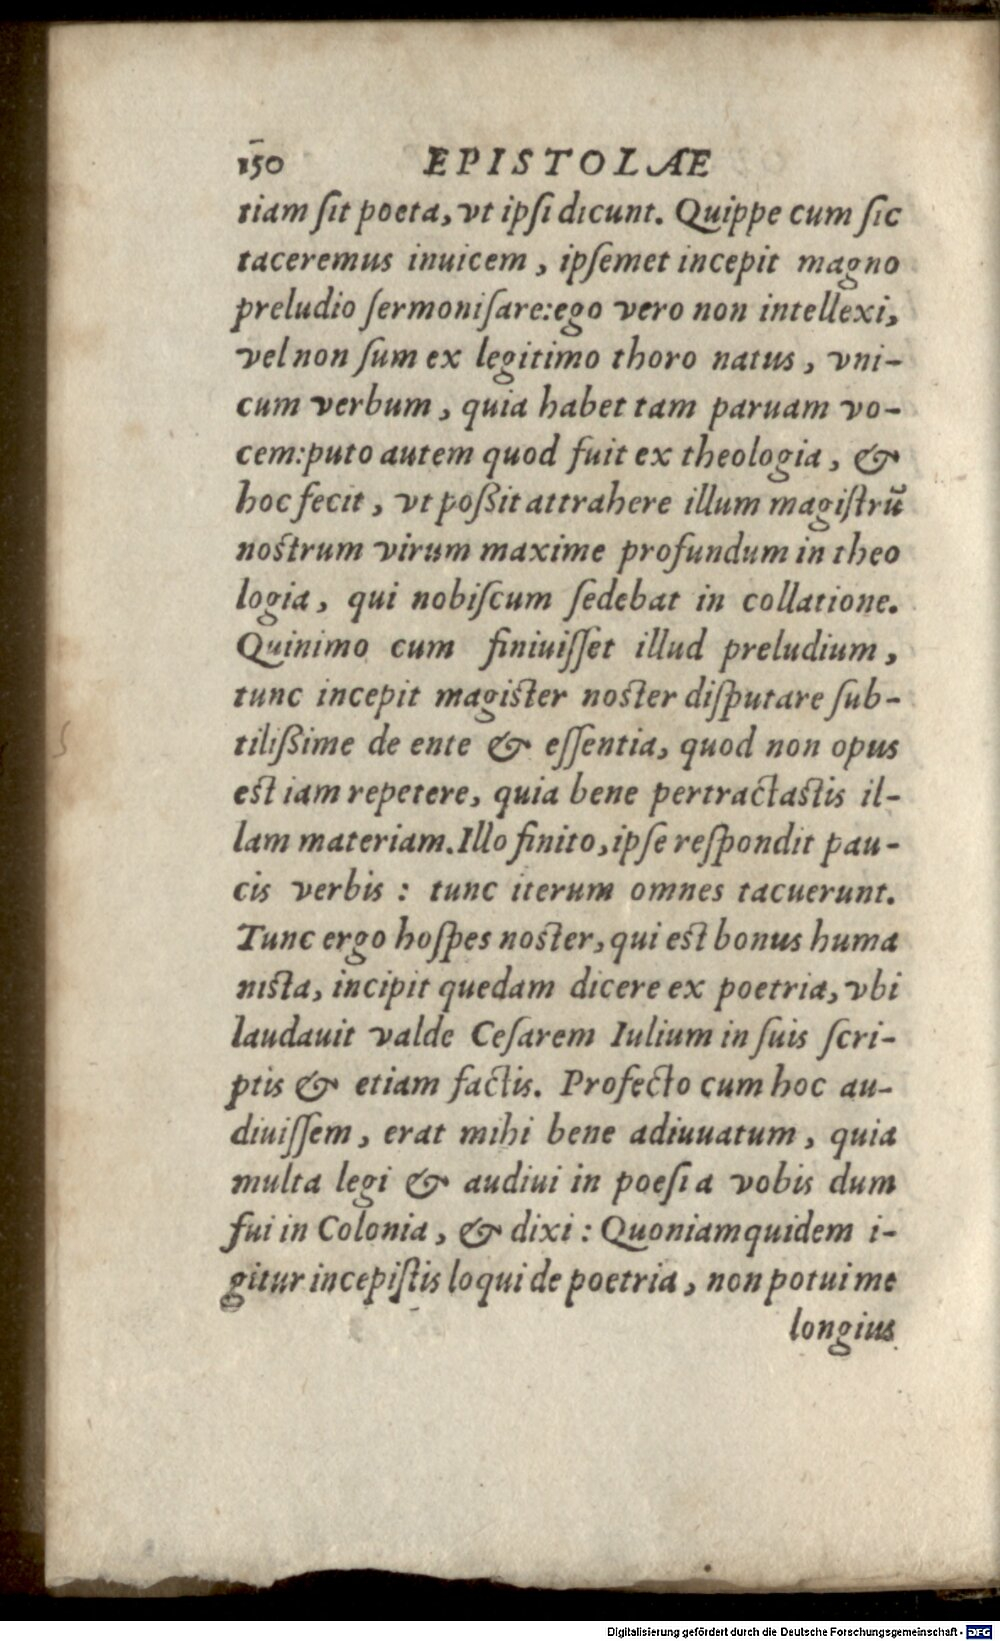 150 EPISTOLÆ
tiam ſit poeta, vt ipſi dicunt. Quippe cum ſic
taceremus inuicem, ipſemet incepit magno
preludio ſermoniſare: ego vero non intellexi,
vel non ſum ex legitimo thoro natus, vni-
cum verbum, quia habet tam paruam vo-
cem: puto autem quod fuit ex theologia, &
hoc fecit, vt poßit attrahere illum magiſtrũ
nostrum virum maxime profundum in theo
logia, qui nobiſcum ſedebat in collatione.
Quinimo cum finiuiſſet illud preludium,
tunc incepit magister noster diſputare ſub-
tilißime de ente & eſſentia, quod non opus
est iam repetere, quia bene pertractastis il-
lam materiam. Illo finito, ipſe reſpondit pau-
cis verbis: tunc iterum omnes tacuerunt.
Tunc ergo hoſpes noster, qui est bonus huma
nista, incipit quedam dicere ex poetria, vbi
laudauit valde Ceſarem Iulium in ſuis ſcri-
ptis & etiam factis. Profecto cum hoc au-
diuiſſem, erat mihi bene adiuuatum, quia
multa legi & audiui in poeſia vobis dum
fui in Colonia, & dixi: Quoniamquidem i-
gitur incepiſtis loqui de poetria, non potui me
longius
Digitalisierung gefördert durch die Deutsche Forschungsgemeinschaft - DFG